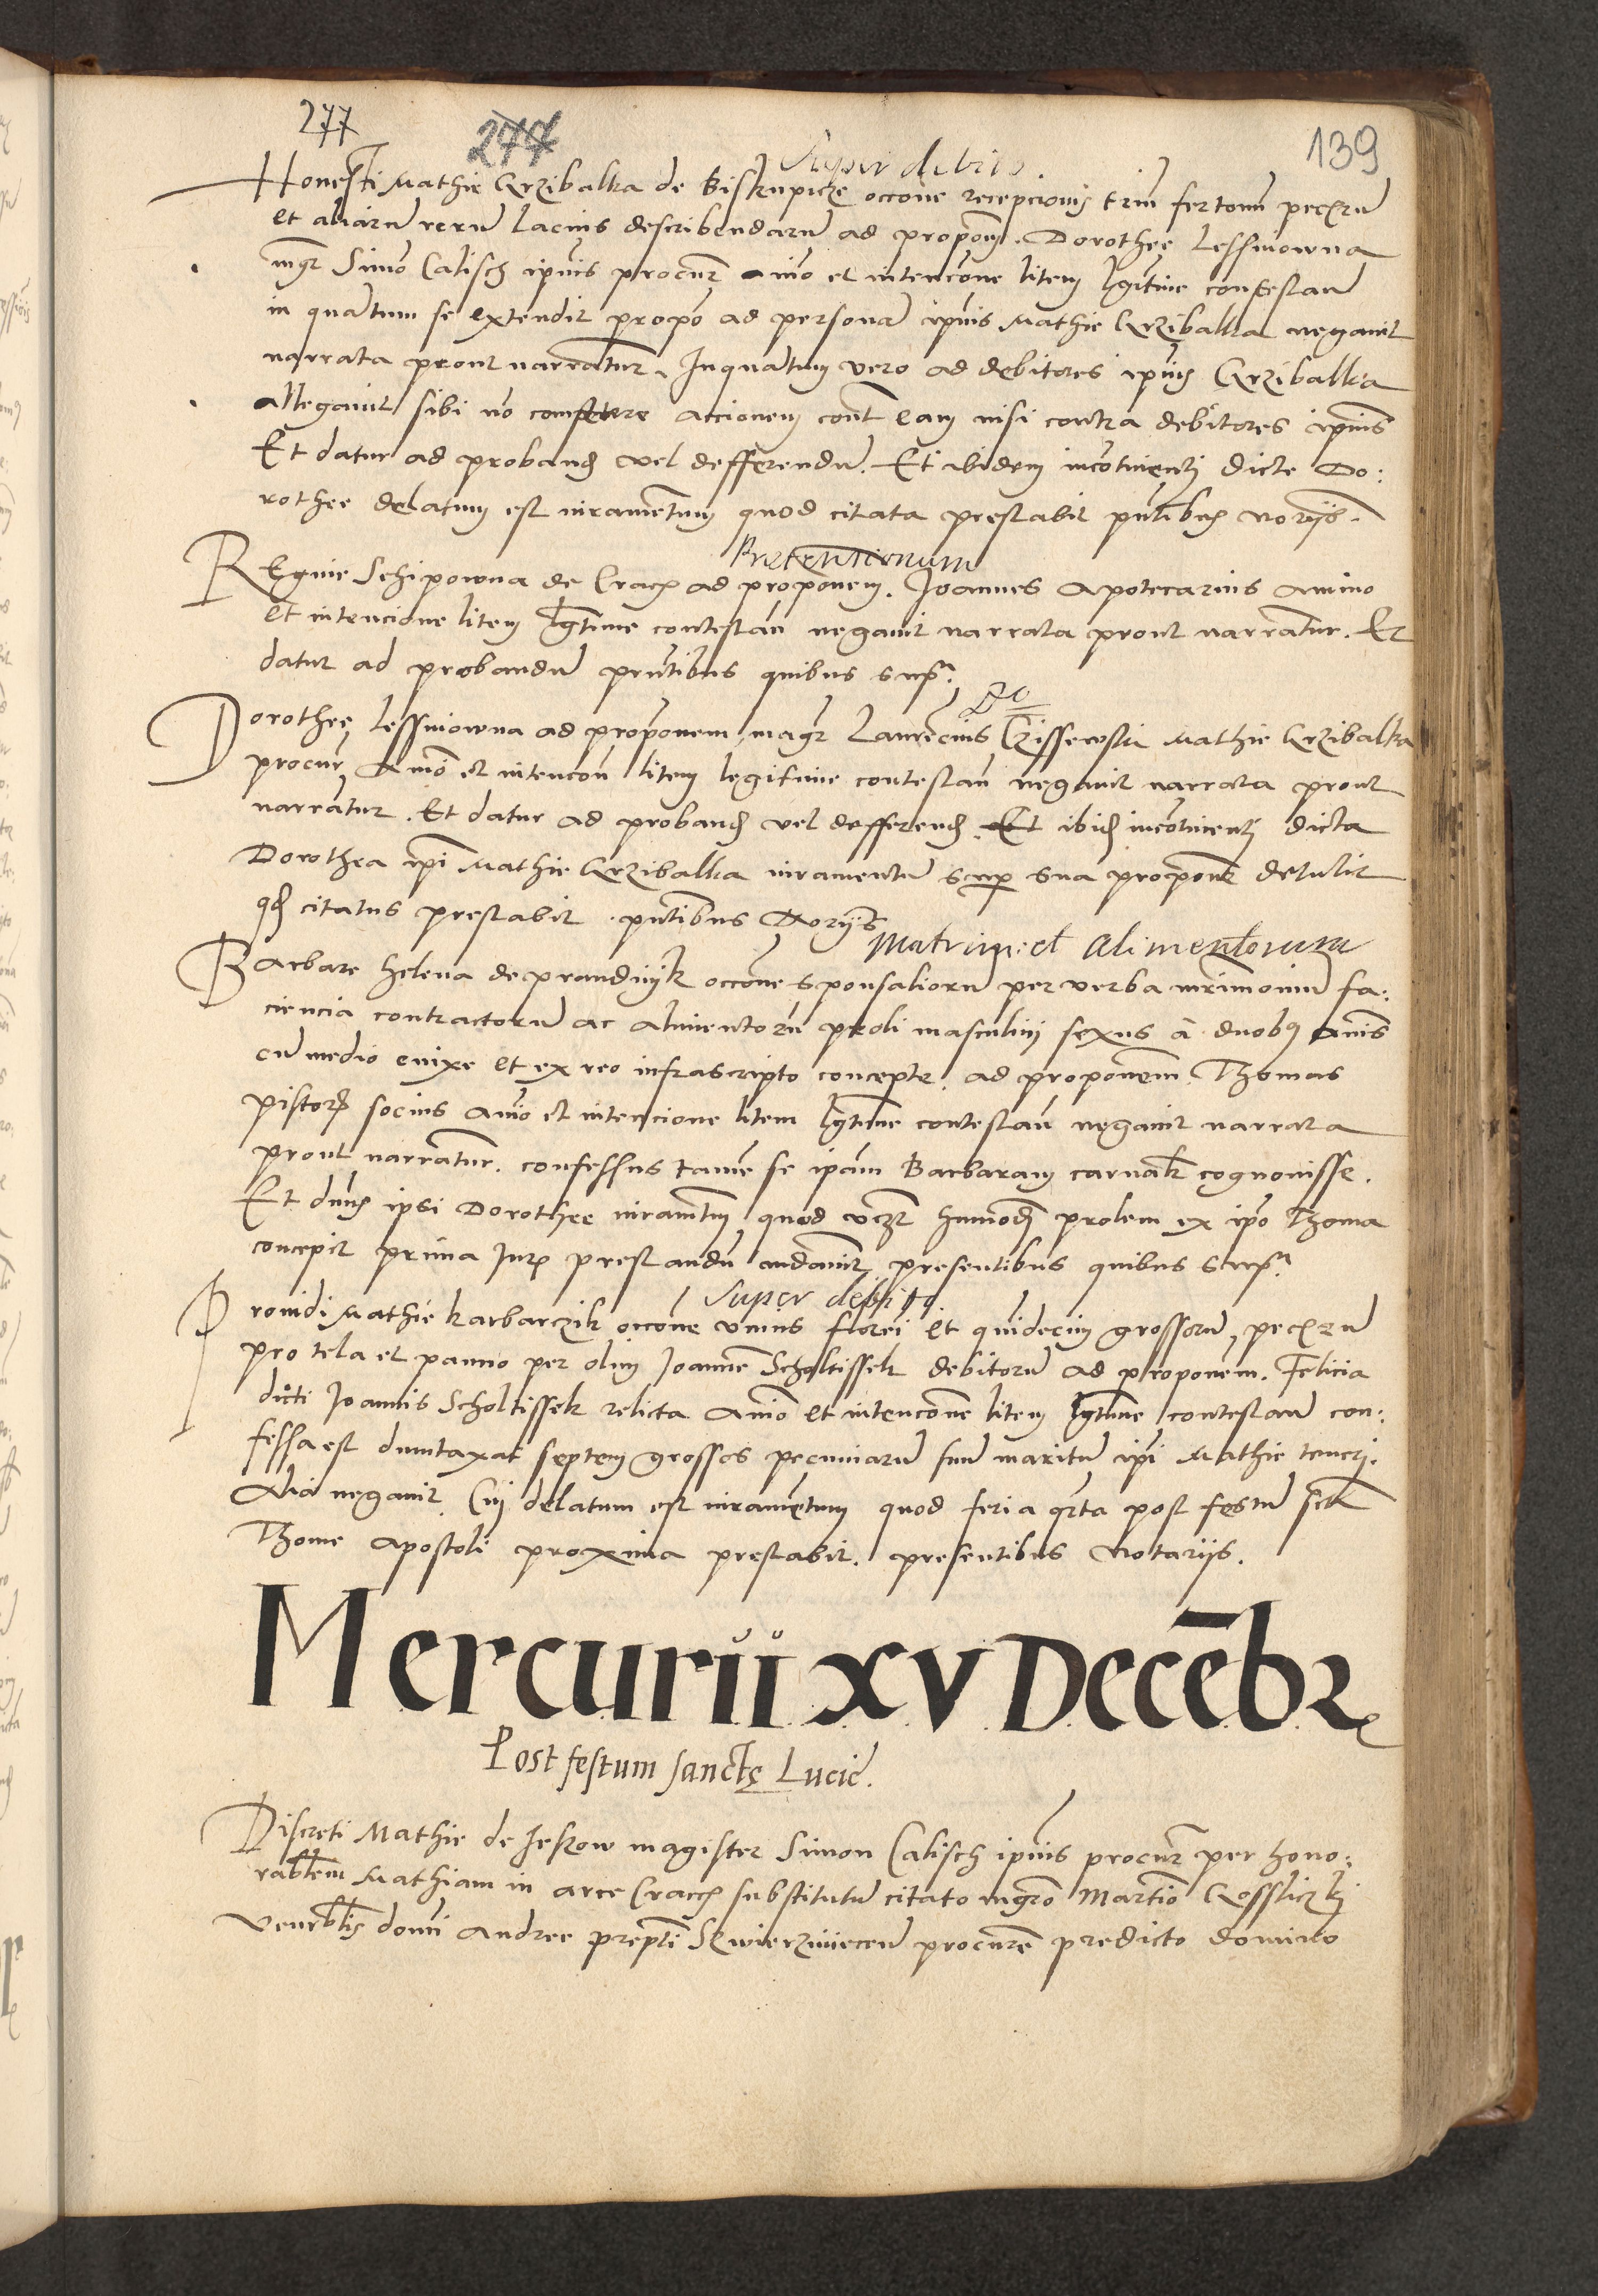 277
277
139
Super debito
Honesti Mathie Grzibalka de Biskupicze occōne recepcionis triū fertonū pecū
et aliarū rerū lacius describendarū ad proponē. Dorothee Lessniowna
mgr Simō Calisch ipius procur aīo et intencōne litem lgitime contestan̄
in quātum se extendit propō ad personā ipius Mathie Grziballka negavit
narrata prout narrantur. Inquātum vero ad debitores ipius Grziballka
allegavit sibi nō competere accionem cont eam nisi contra debitores ipius
Et datur ad proband vel defferendū. Et ibidem incōtinenti dicte Do:
rothee delatum est iuramentum quod citata prestabit pntibus noriis.
Pretensionum
Regine Schipowna de Crac ad proponem. Joannes Apotecarius animo
et intencione litem lgtime contestan̄ negavit narrata prout narrantur. Et
datur ad probandū pntibus quibus sup̄.
Dorothee Lessniowna ad proponem magr Laurēcius Czissewski Mathie Grzibalka
procur Animō et intencōn litem legitime contestan̄ negavit narrata prout
narrantur. Et datur ad proband vel defferend. Et ibid incōtinenti dicta
Dorothea ipi Mathie Grziballka iuramentū sup sua proponē detulit
qd citatus prestabit. pntibus Noriis
Matrim: et Alimentorum
Barbare Helena de prandnik occōne sponsaliorū per verba mrimoniū fa:
ciencia contractorū ac alimentorū proli masculini sexus a duobus annis
cū medio enixe et ex reo infrascripto concepte. ad proponem Thomas
pistor socius aīo et intencione litem lgtime contestan̄ negavit narrata
prout narrantur. confessus tamē se ipam Barbaram carnalr cognovisse.
Et dnus ipsi Dorothee iuramtum quod huiusmodi prolem ex ipo Thoma
concepit prima Jur prestandū mandavit presentibus quibus sup̄.
Super debito
Providi Mathie Karbarczik occōne unius floreni et quīdecim grossorū pecū
pro tela et panno per olim Joannē Scholtissek debitorū ad proponem. Felicia
dicti Joannis Scholtissek relicta Animō et intencōne litem lgtime contestan̄ con:
fessa est dumtaxat septem grossos pecuniarū suū maritū ipi Mathie teneri.
Alia negavit. Cui delatum est iuramentum quod feria qrta post festū scti
Thome Apostoli proxima prestabit. presentibus Notariis.
Mercurii XV Decēbr
Post festum sanctę Lucie.
Discreti Mathie de Jeskow magister Simon Calisch ipius procur per hono:
rabilem Mathiam in arce Cracc substitutū citato mgrō Martīo Gosslirzki
venerblis domi Andree prepti Zwierziniecen procurē predicto domino